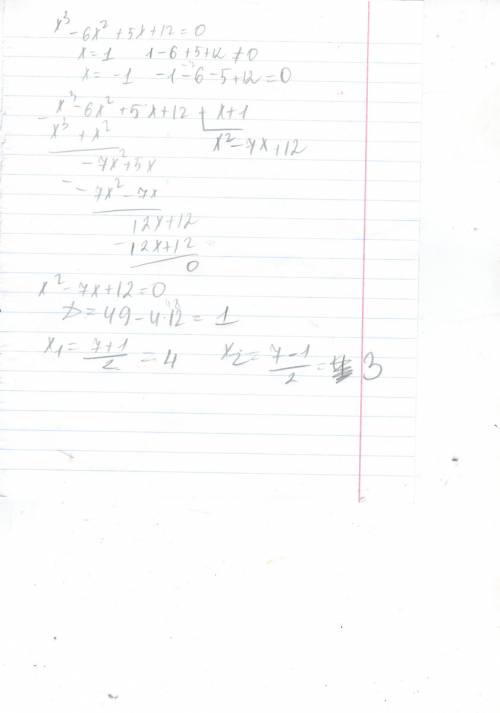 x³ - 6x² + 5x + 12 = 0
x = 1 1 - 6 + 5 + 12 ≠ 0
x = -1 -1 - 6 - 5 + 12 = 0
x³ - 6x² + 5x + 12 | x + 1
- x³ + x² x² - 7x + 12
- 7x² + 5x
- - 7x² - 7x
12x + 12
- 12x + 12
0
x² - 7x + 12 = 0
D = 49 - 4·12 = 1
x₁ = (7+1)/2 = 4 x₂ = (7-1)/2 = 3